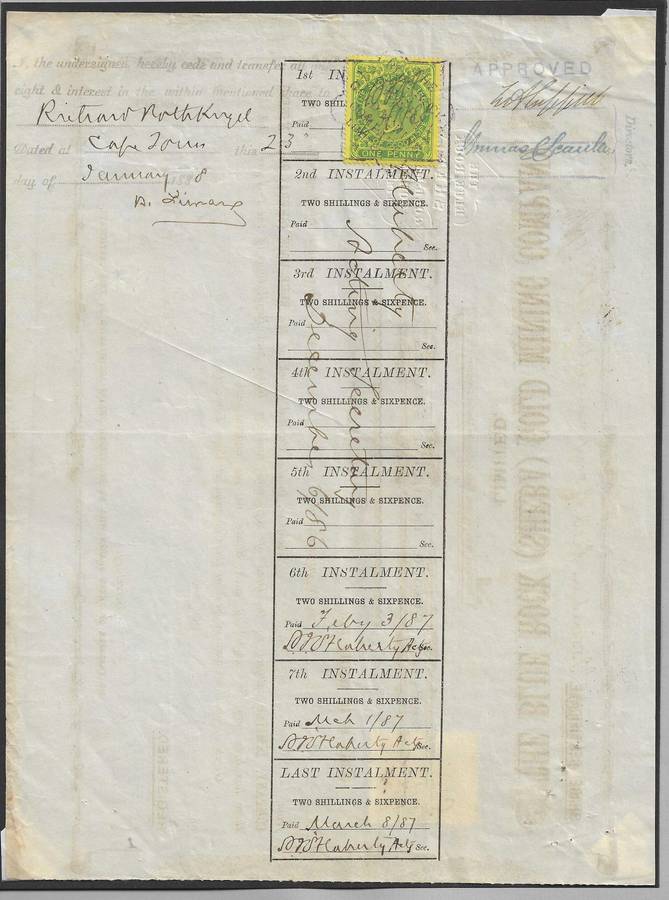 I, the undersigned, hereby cede and transfer all my
right & interest in the within mentioned share to
Richard Rothkugel
Dated at Cape Town this 23
day of January 188 8
1st IN
TWO SHIL
Paid
ONE PENNY
2nd INSTALMENT.
TWO SHILLINGS & SIXPENCE.
Paid
Sec.
3rd INSTALMENT.
TWO SHILLINGS & SIXPENCE.
Paid
Sec.
4th INSTALMENT.
TWO SHILLINGS & SIXPENCE.
Paid
Sec.
5th INSTALMENT.
TWO SHILLINGS & SIXPENCE.
Paid
Sec.
Flaherty
Acting Secretary
December 6/86
6th INSTALMENT.
TWO SHILLINGS & SIXPENCE.
Paid Feby 3/87
Flaherty Actg Sec.
7th INSTALMENT.
TWO SHILLINGS & SIXPENCE.
Paid Mch 1/87
Flaherty Actg Sec.
LAST INSTALMENT.
TWO SHILLINGS & SIXPENCE.
Paid March 8/87
Flaherty Actg Sec.
APPROVED
Directors.
THE BLUE ROCK (SHEBA) GOLD MINING COMPAN
LIMITED